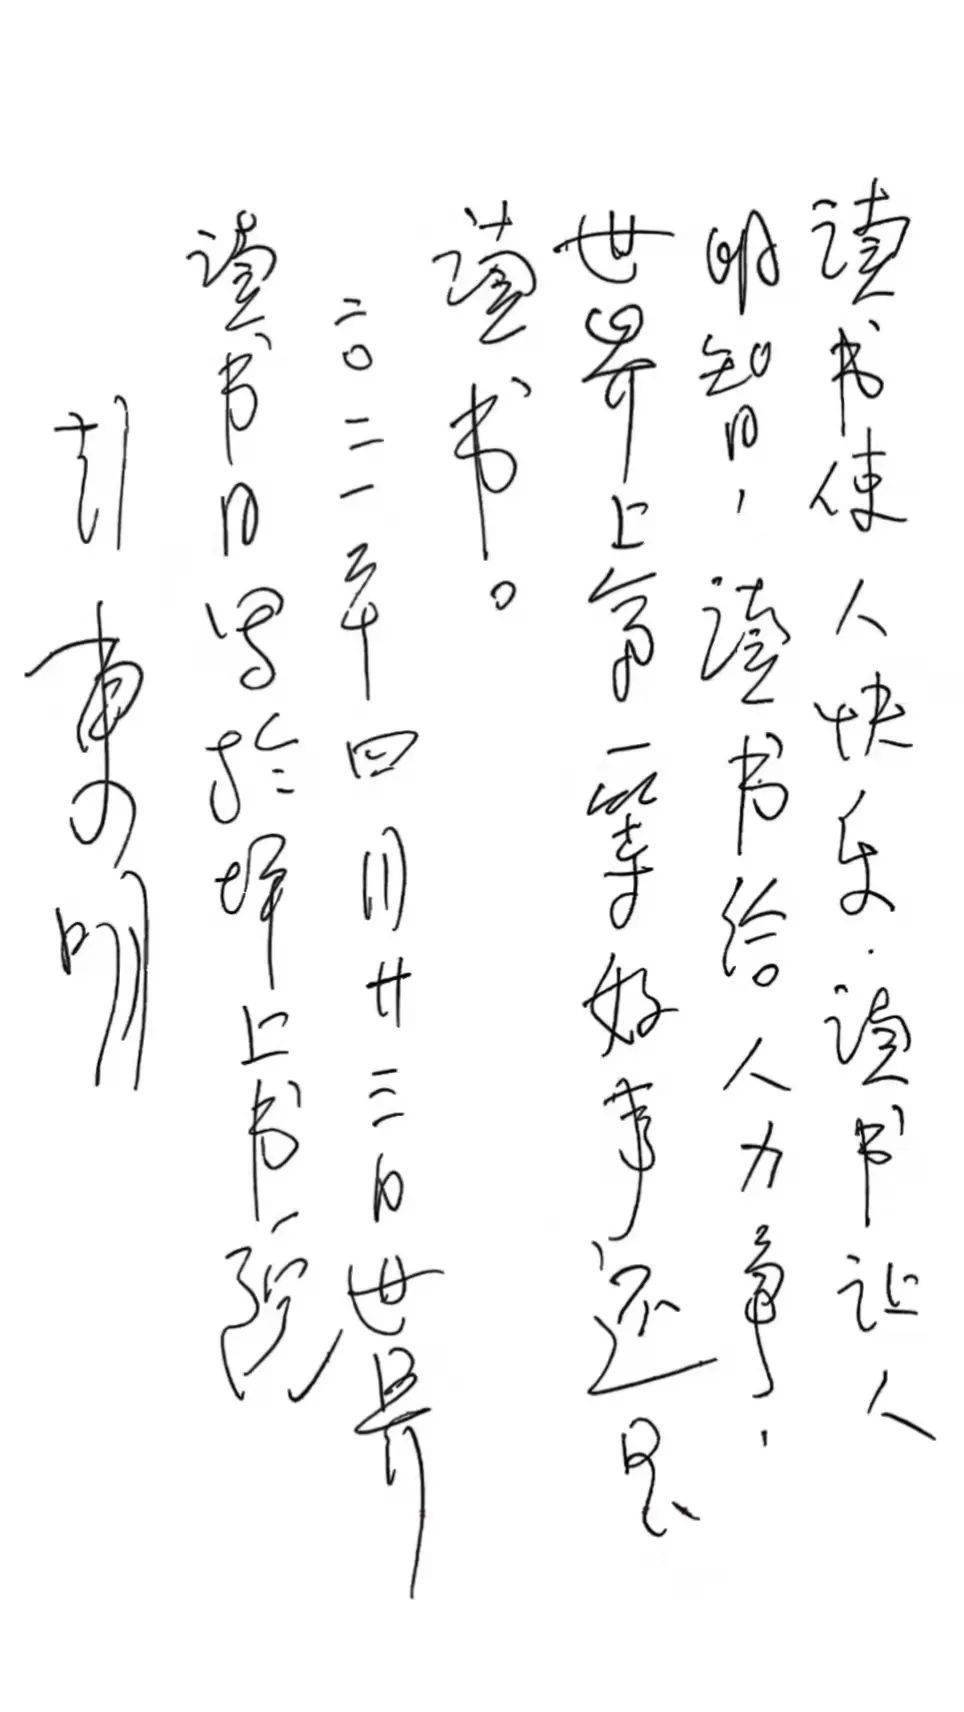 读书使人快乐.读书让人
明智,读书给人力
世界上第一等好事还是
读书。
二〇二一年四月廿三日世界
读书日写於坪上书院